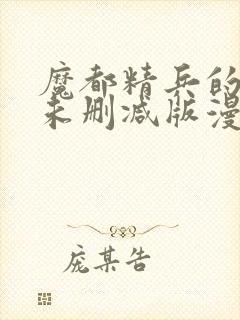 魔都精兵的
未删减版漫
庞某告